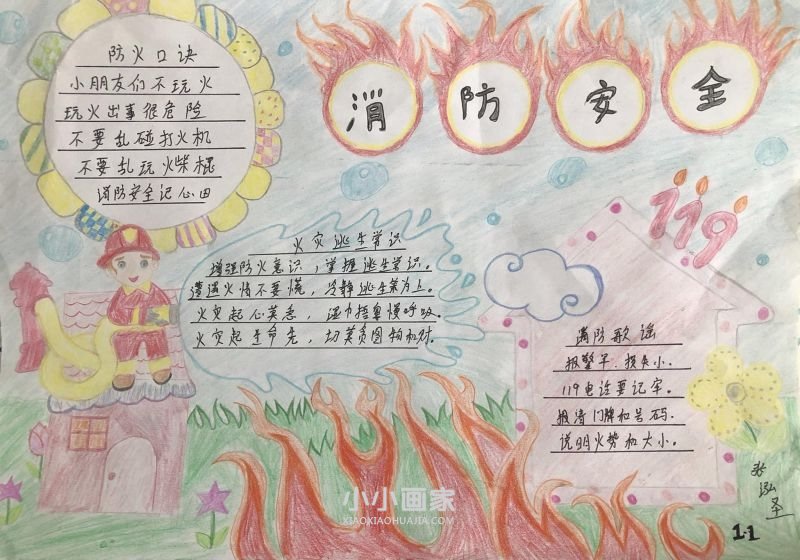 消防安全
防火口诀
小朋友们不玩火
玩火出事很危险
不要乱碰打火机
不要乱玩火柴棍
消防安全记心田
119
火灾逃生常识
增强防火意识，掌握逃生常识。
遭遇火情不要慌，冷静逃生策为上。
火灾起心莫急，湿巾捂鼻慢呼吸。
火灾起生命先，切莫贪图物和财。
消防歌谣
报警早.损失小.
119电话要记牢。
报清门牌和号码.
说明火势和大小。
小小画家
XIAOXIAOHUAJIA.COM
泓圣
1.1